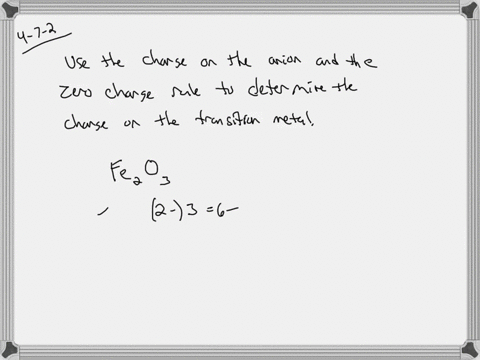 4-7-2
Use the charge on the anion and the
zero charge rule to determine the
charge on the transition metal.
Fe₂O₃
(2-)3 = 6-